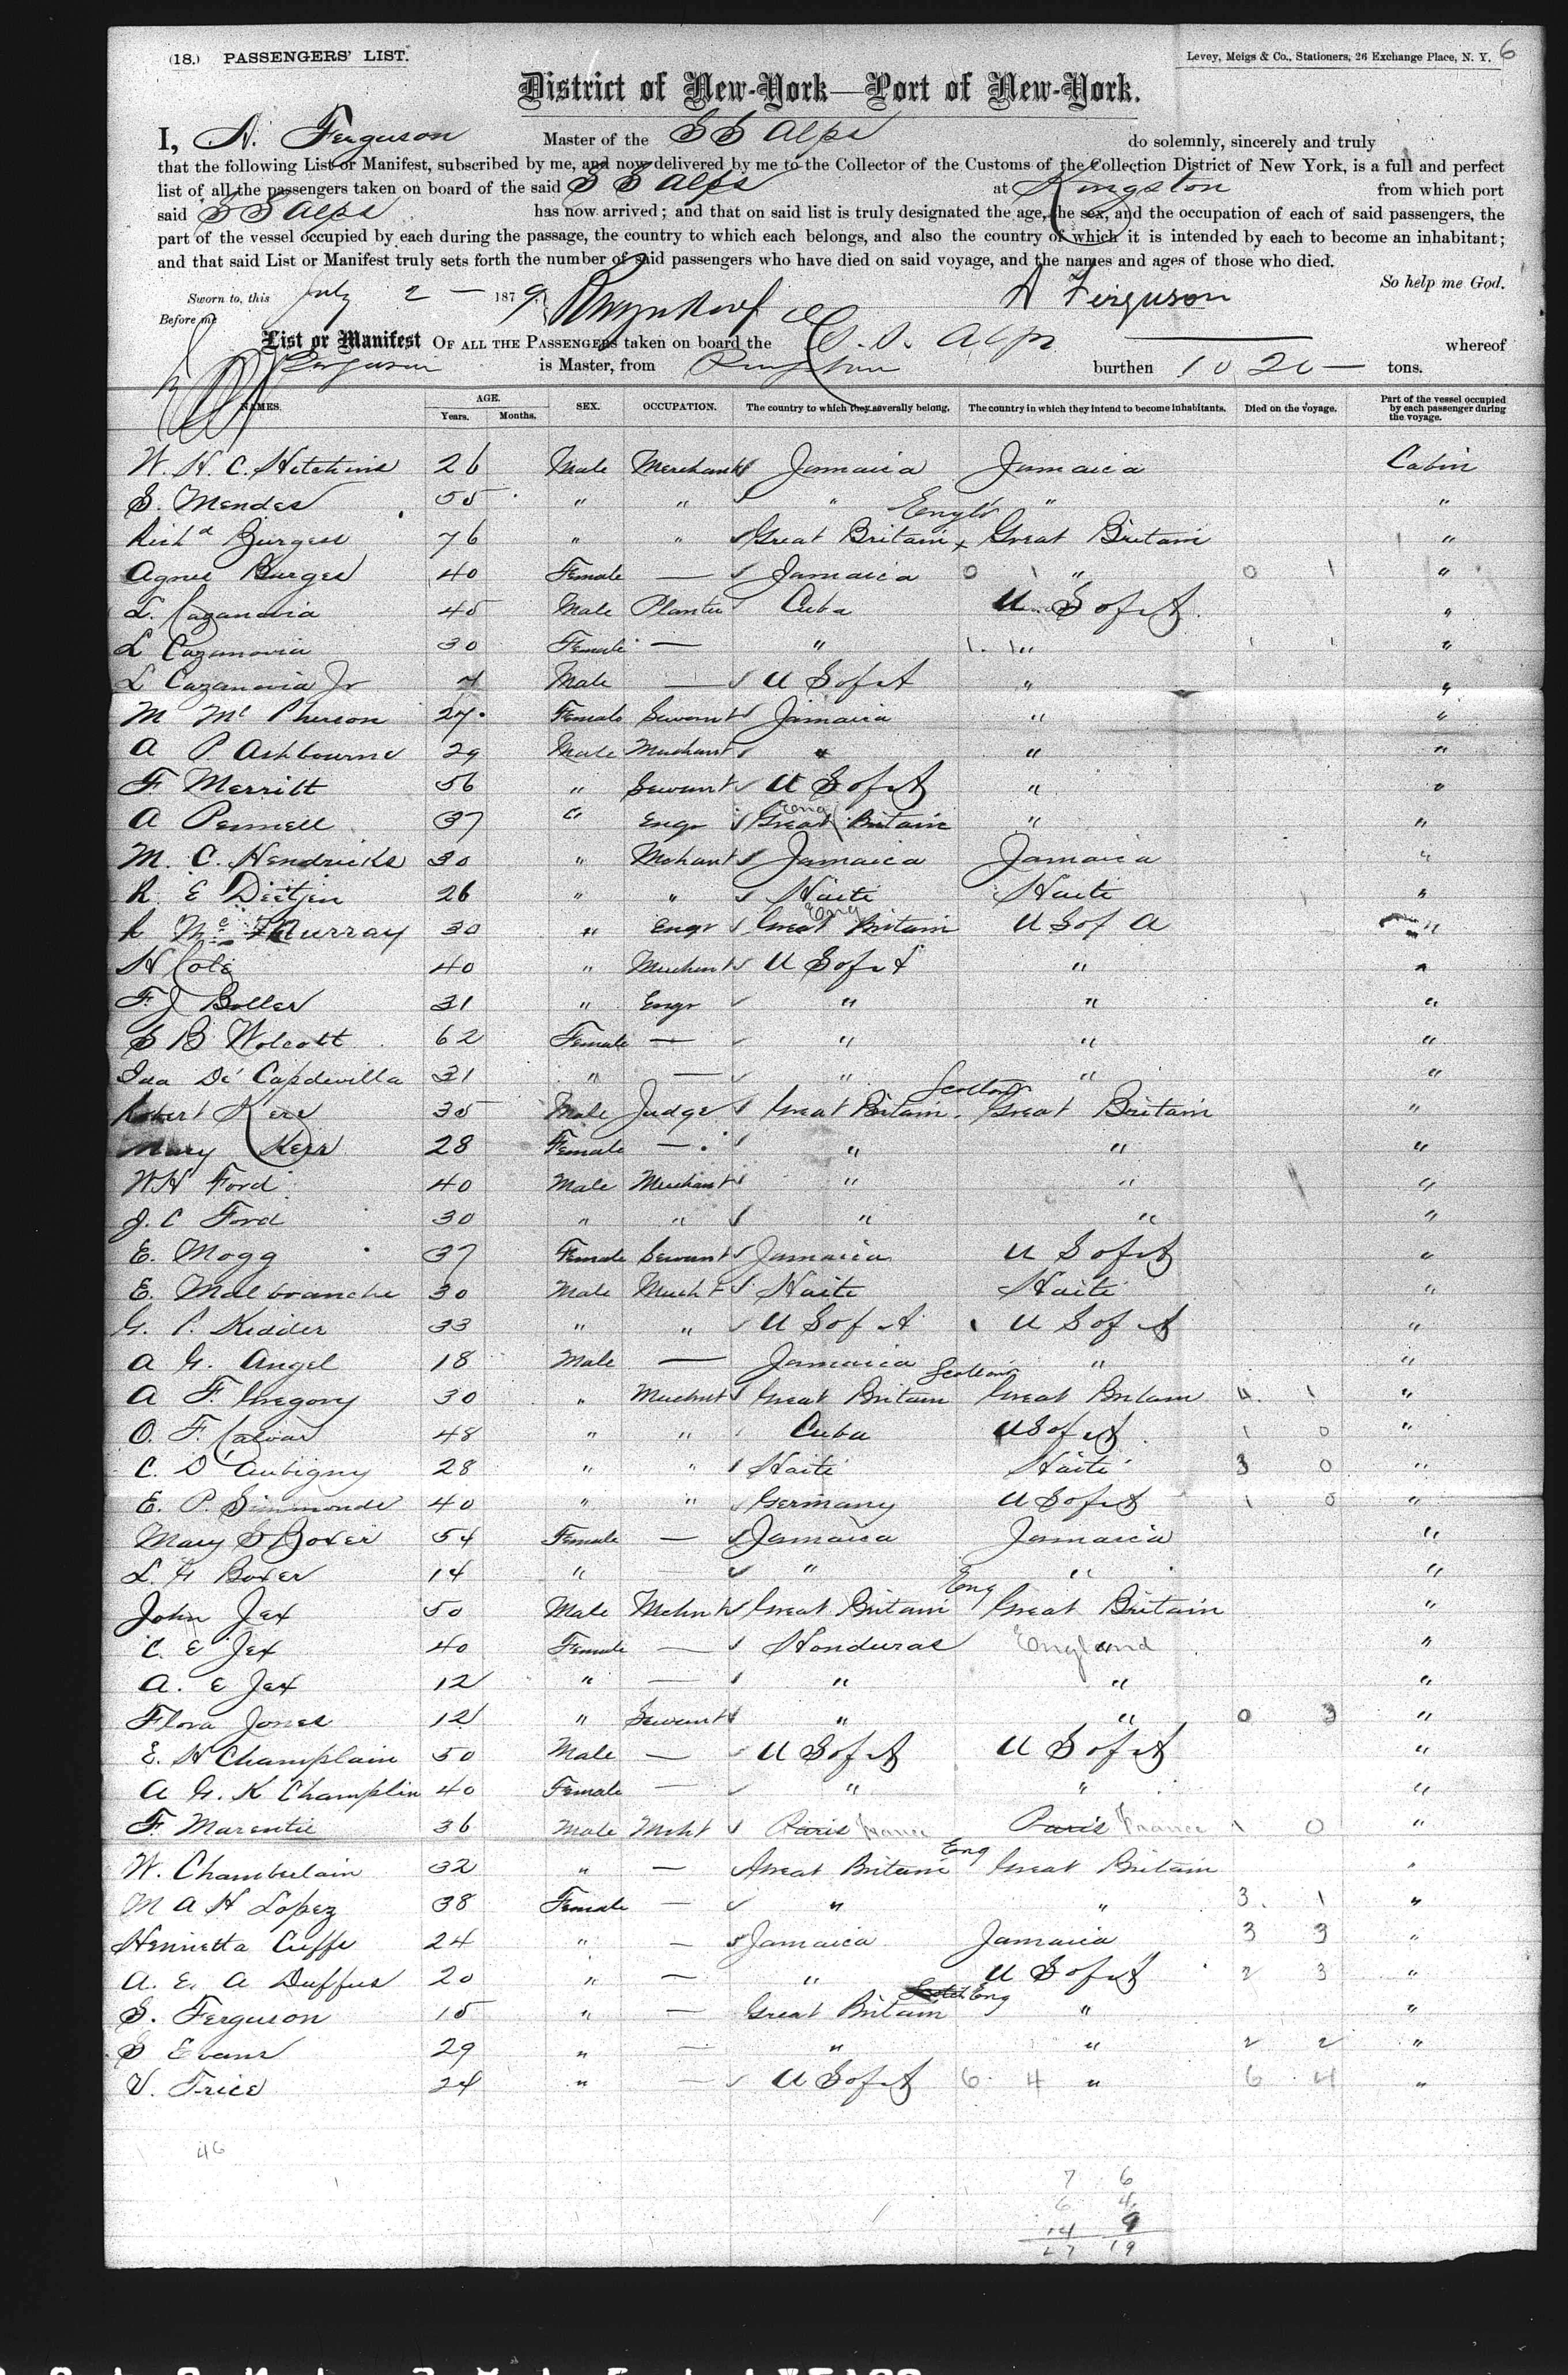 (18.) PASSENGERS' LIST.
Levey, Meigs & Co., Stationers, 26 Exchange Place, N. Y. 6
District of New-York—Port of New-York.
I, A. Ferguson Master of the S S Alps do solemnly, sincerely and truly
that the following List or Manifest, subscribed by me, and now delivered by me to the Collector of the Customs of the Collection District of New York, is a full and perfect
list of all the passengers taken on board of the said S S Alps at Kingston from which port
said S S Alps has now arrived; and that on said list is truly designated the age, the sex, and the occupation of each of said passengers, the
part of the vessel occupied by each during the passage, the country to which each belongs, and also the country of which it is intended by each to become an inhabitant;
and that said List or Manifest truly sets forth the number of said passengers who have died on said voyage, and the names and ages of those who died.
So help me God.
Sworn to, this July 2 — 1879 A Ferguson
Before me
List or Manifest OF ALL THE PASSENGERS taken on board the S. S. Alps whereof
Ferguson is Master, from Kingston burthen 1020 — tons.
NAMES. AGE. Years. Months. SEX. OCCUPATION. The country to which they severally belong. The country in which they intend to become inhabitants. Died on the voyage. Part of the vessel occupied by each passenger during the voyage.
W. H. C. Hitchins 26 Male Merchant Jamaica Jamaica Cabin
S. Mendes 55 " " " " "
Richd Burgess 76 " " Great Britain Engld Great Britain "
Agnes Burges 40 Female — Jamaica 0 1 " 0 1 "
L. Cazanovia 45 Male Planter Cuba U S of A "
L Cazanovia 30 Female — " 1 1 " 1 1 "
L Cazanovia Jr 4 Male — U S of A " "
M Mc Pherson 27 Female Servant Jamaica " "
A P. Ashbourne 29 Male Merchant " " "
F. Merritt 56 " Servant U S of A " "
A Pennell 37 " Engr Great Britain Eng " "
M. C. Hendricks 30 " Mchant Jamaica Jamaica "
R. E Dietjen 26 " " Haite Haite "
R Mc Murray 30 " Engr Great Britain Eng U S of A "
H Cole 40 " Merchant U S of A " "
F. J Boller 31 " Engr " " "
S B Wolcott 62 Female — " " "
Ida De Capdevilla 31 " — " " "
Robert Kerr 35 Male Judge Great Britain Scotland Great Britain "
Mary Kerr 28 Female — " " "
W H Ford 40 Male Merchant " " "
J. C Ford 30 " " " " "
E. Mogg 37 Female Servant Jamaica U S of A "
E. Malbranche 30 Male Mucht Haite Haite "
G. P. Kidder 33 " " U S of A U S of A "
A G. Angel 18 Male — Jamaica " "
A F. Gregory 30 " Merchnt Great Britain Scotland Great Britain 4 1 "
O. F. Calvar 48 " " Cuba U S of A 1 0 "
C. D'Aubigny 28 " " Haite Haite 3 0 "
E. P. Simmonds 40 " " Germany U S of A 1 0 "
Mary S Boxer 54 Female — Jamaica Jamaica "
L. G Boxer 14 " " " "
John Jex 50 Male Mchnt Great Britain Eng Great Britain "
C. E Jex 40 Female — Honduras England "
A. E Jex 12 " — " " "
Flora Jones 12 " Servant " " 0 3 "
E. H Champlain 50 Male — U S of A U S of A "
A G. K Champlin 40 Female — " " "
F. Marentie 36 Male Mcht Paris France Paris France 1 0 "
W. Chamberlain 32 " — Great Britain Eng Great Britain "
M A H Lopez 38 Female — " " 3 1 "
Henrietta Cuffe 24 " — Jamaica Jamaica 3 3 "
A. E. A Duffus 20 " — " U S of A 2 3 "
S. Ferguson 15 " — Great Britain Scotld Eng " "
S Evans 29 " — " " 2 2 "
V. Trice 24 " — U S of A 6 4 " 6 4 "
46
7 6
6 4
14 9
27 19